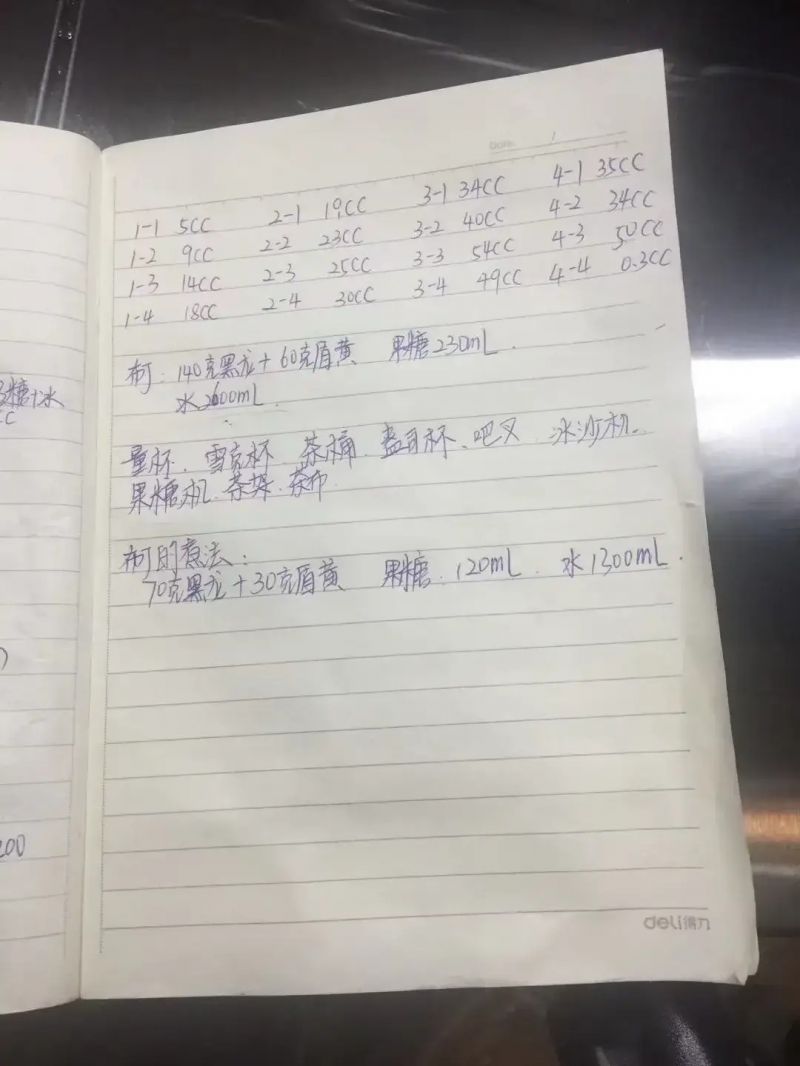 Date. /
1-1 5CC 2-1 19CC 3-1 34CC 4-1 35CC
1-2 9CC 2-2 23CC 3-2 40CC 4-2 34CC
1-3 14CC 2-3 25CC 3-3 54CC 4-3 50CC
1-4 18CC 2-4 30CC 3-4 49CC 4-4 0.3CC
布: 140克黑龙+60克眉黄 果糖230mL.
水2600mL.
量杯、雪克杯 茶桶、盎司杯、吧叉 冰沙机、
果糖机、茶架、茶布
布的煮法:
70克黑龙+30克眉黄 果糖.120mL. 水1300mL.
糖+水
200
deli得力